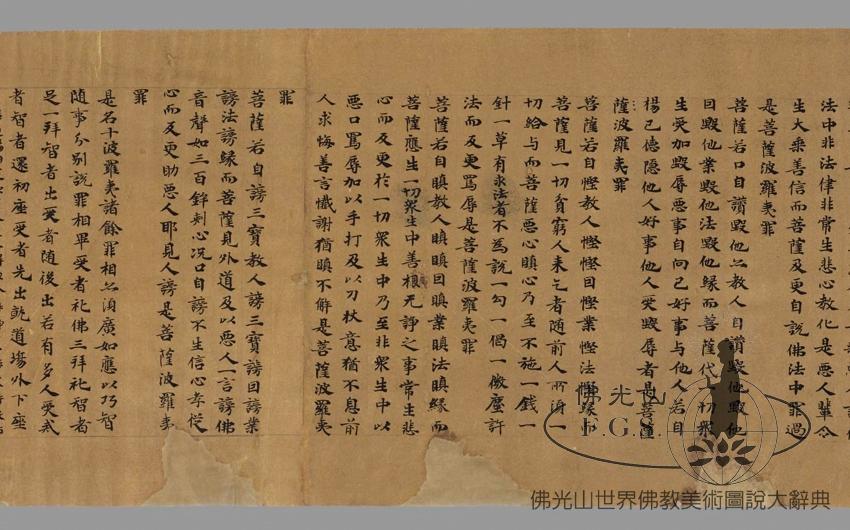 法中非法律非常生悲心教化是悪人輩令
生大乗善信而菩薩及更自說佛法中罪過
是菩薩波羅夷罪
菩薩若口自讃毀他亦教人自讃毀他毀他
因毀他業毀他法毀他縁而菩薩代一切衆
生受加毀辱悪事自向己好事与他人若自
揚己徳隠他人好事他人受毀辱者是菩薩
薩波羅夷罪
菩薩若自慳教人慳慳因慳業慳法慳縁而
菩薩見一切貧窮人来乞者随前人所湏一
切給与而菩薩悪心瞋心乃至不施一錢一
針一草有求法者不為說一句一偈一微塵許
法而及更罵辱是菩薩波羅夷罪
菩薩若自瞋教人瞋瞋因瞋業瞋法瞋縁而
菩薩應生一切衆生中善根无諍之事常生悲
心而及更於一切衆生中乃至非衆生中以
悪口罵辱加以手打及以刀杖意猶不息前
人求悔善言懺謝猶瞋不解是菩薩波羅夷
罪
菩薩若自謗三寳教人謗三寳謗因謗業
謗法謗縁而菩薩見外道及以悪人一言謗佛
音聲如三百鉾刾心况口自謗不生信心孝従
心而及更助悪人耶見人謗是菩薩波羅夷
罪
是名十波羅夷諸餘罪相亦湏廣如應以巧智
随事分別說罪相畢受者礼佛三拜礼智者
足一拜智者出受者随後出若有多人受戒
者智者還初座受者先出既道場外下座
佛光山
F.G.S.
佛光山世界佛教美術圖說大辭典